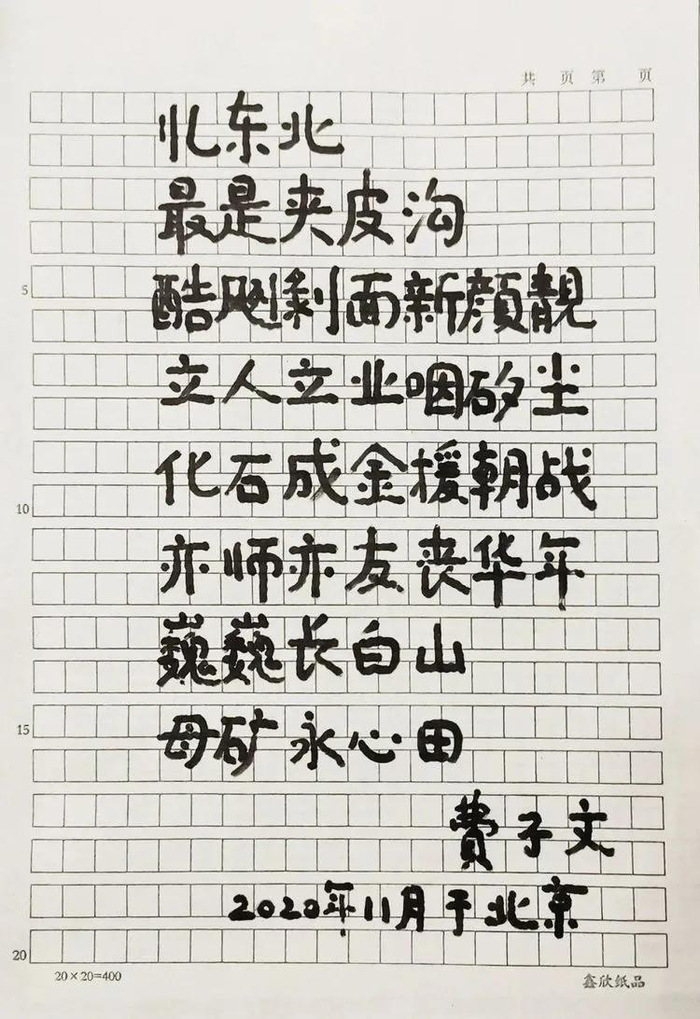 共 页 第 页
忆东北
最是夹皮沟
酷飚剥面新颜靓
立人立业咽矽尘
化石成金援朝战
亦师亦友丧华年
巍巍长白山
母矿永心田
費子文
2020年11月于北京
5
10
15
20
20×20=400
鑫欣纸品